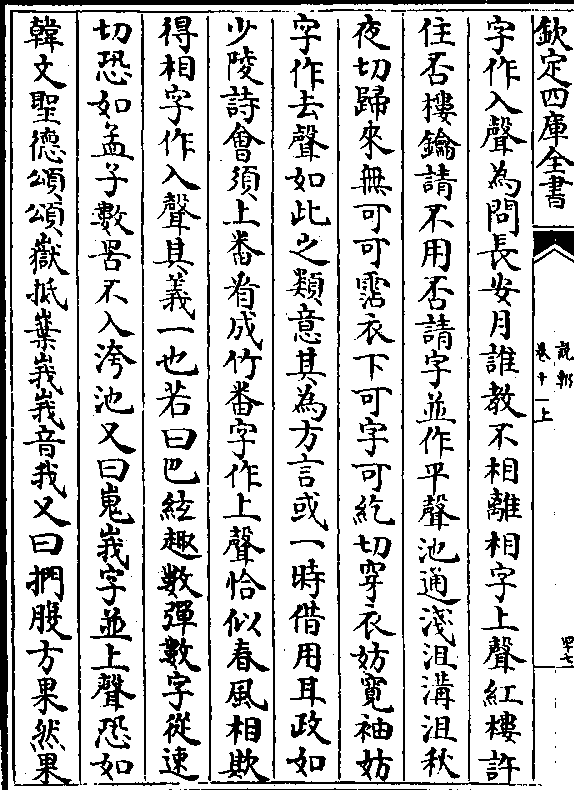 欽定四庫全書
說郛
卷十一上
四七
字作入聲為問長安月誰教不相離相字上聲紅樓許
住否樓鑰請不用否請字並作平聲池通淺沮溝沮秋
夜切歸來無可可霑衣下可字可紇切穿衣妨寛袖妨
字作去聲如此之類意其為方言或一時借用耳政如
少陵詩會須上番看成竹番字作上聲恰似春風相欺
得相字作入聲其義一也若曰巴絃趣數彈數字從速
切恐如孟子數罟不入洿池又曰嵬峩字並上聲恐如
韓文聖德頌頌嶽抵嶪峩峩音我又曰捫股方果然果